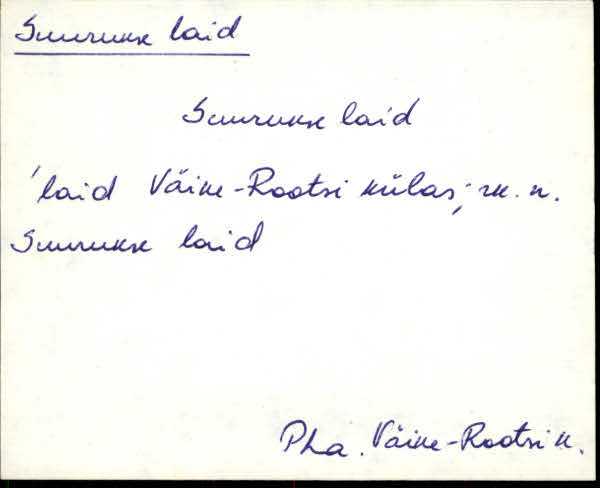 Suurukse laid
Suurukse laid
'laid Väike-Rootsi külas; rk. n.
Suurukse laid
Pha. Väike-Rootsi k.